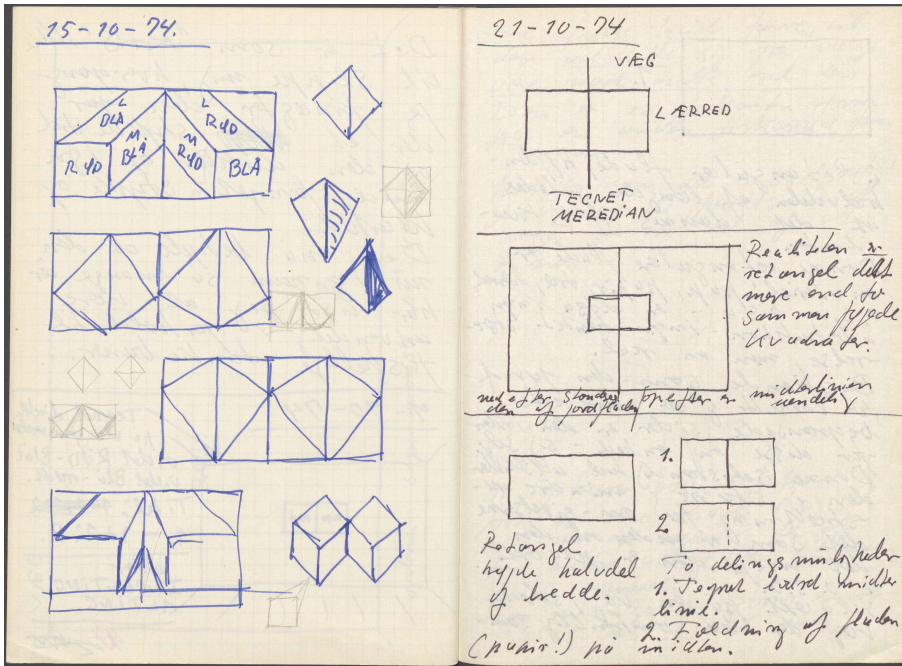 15-10-74.
L
BLÅ
L
RØD
RØD
M.
BLÅ
M
RØD
BLÅ
21-10-74
VÆG
LÆRRED
TEGNET
MEREDIAN
Realiteten er
retangel delt
mere end to
sammen føjede
kvadrater.
nedefter standses opefter er midterlinien
den af jordfladen uendelig
Retangel
højde halvdel
af bredde.
1.
2
To delingsmuligheder
1. Tegnet lodret midter
linie.
2. Foldning af fladen
(papir!) på midten.